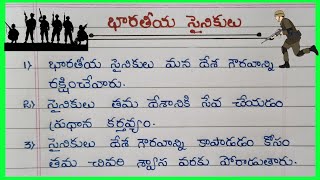 భారతీయ సైనికులు
1) భారతీయ సైనికులు మన దేశ గౌరవాన్ని
రక్షించేవారు.
2) సైనికులు తమ దేశానికి సేవ చేయడం
ప్రధాన కర్తవ్యం.
3) సైనికులు దేశ గౌరవాన్ని కాపాడడం కోసం
తమ చివరి శ్వాస వరకు పోరాడుతారు.